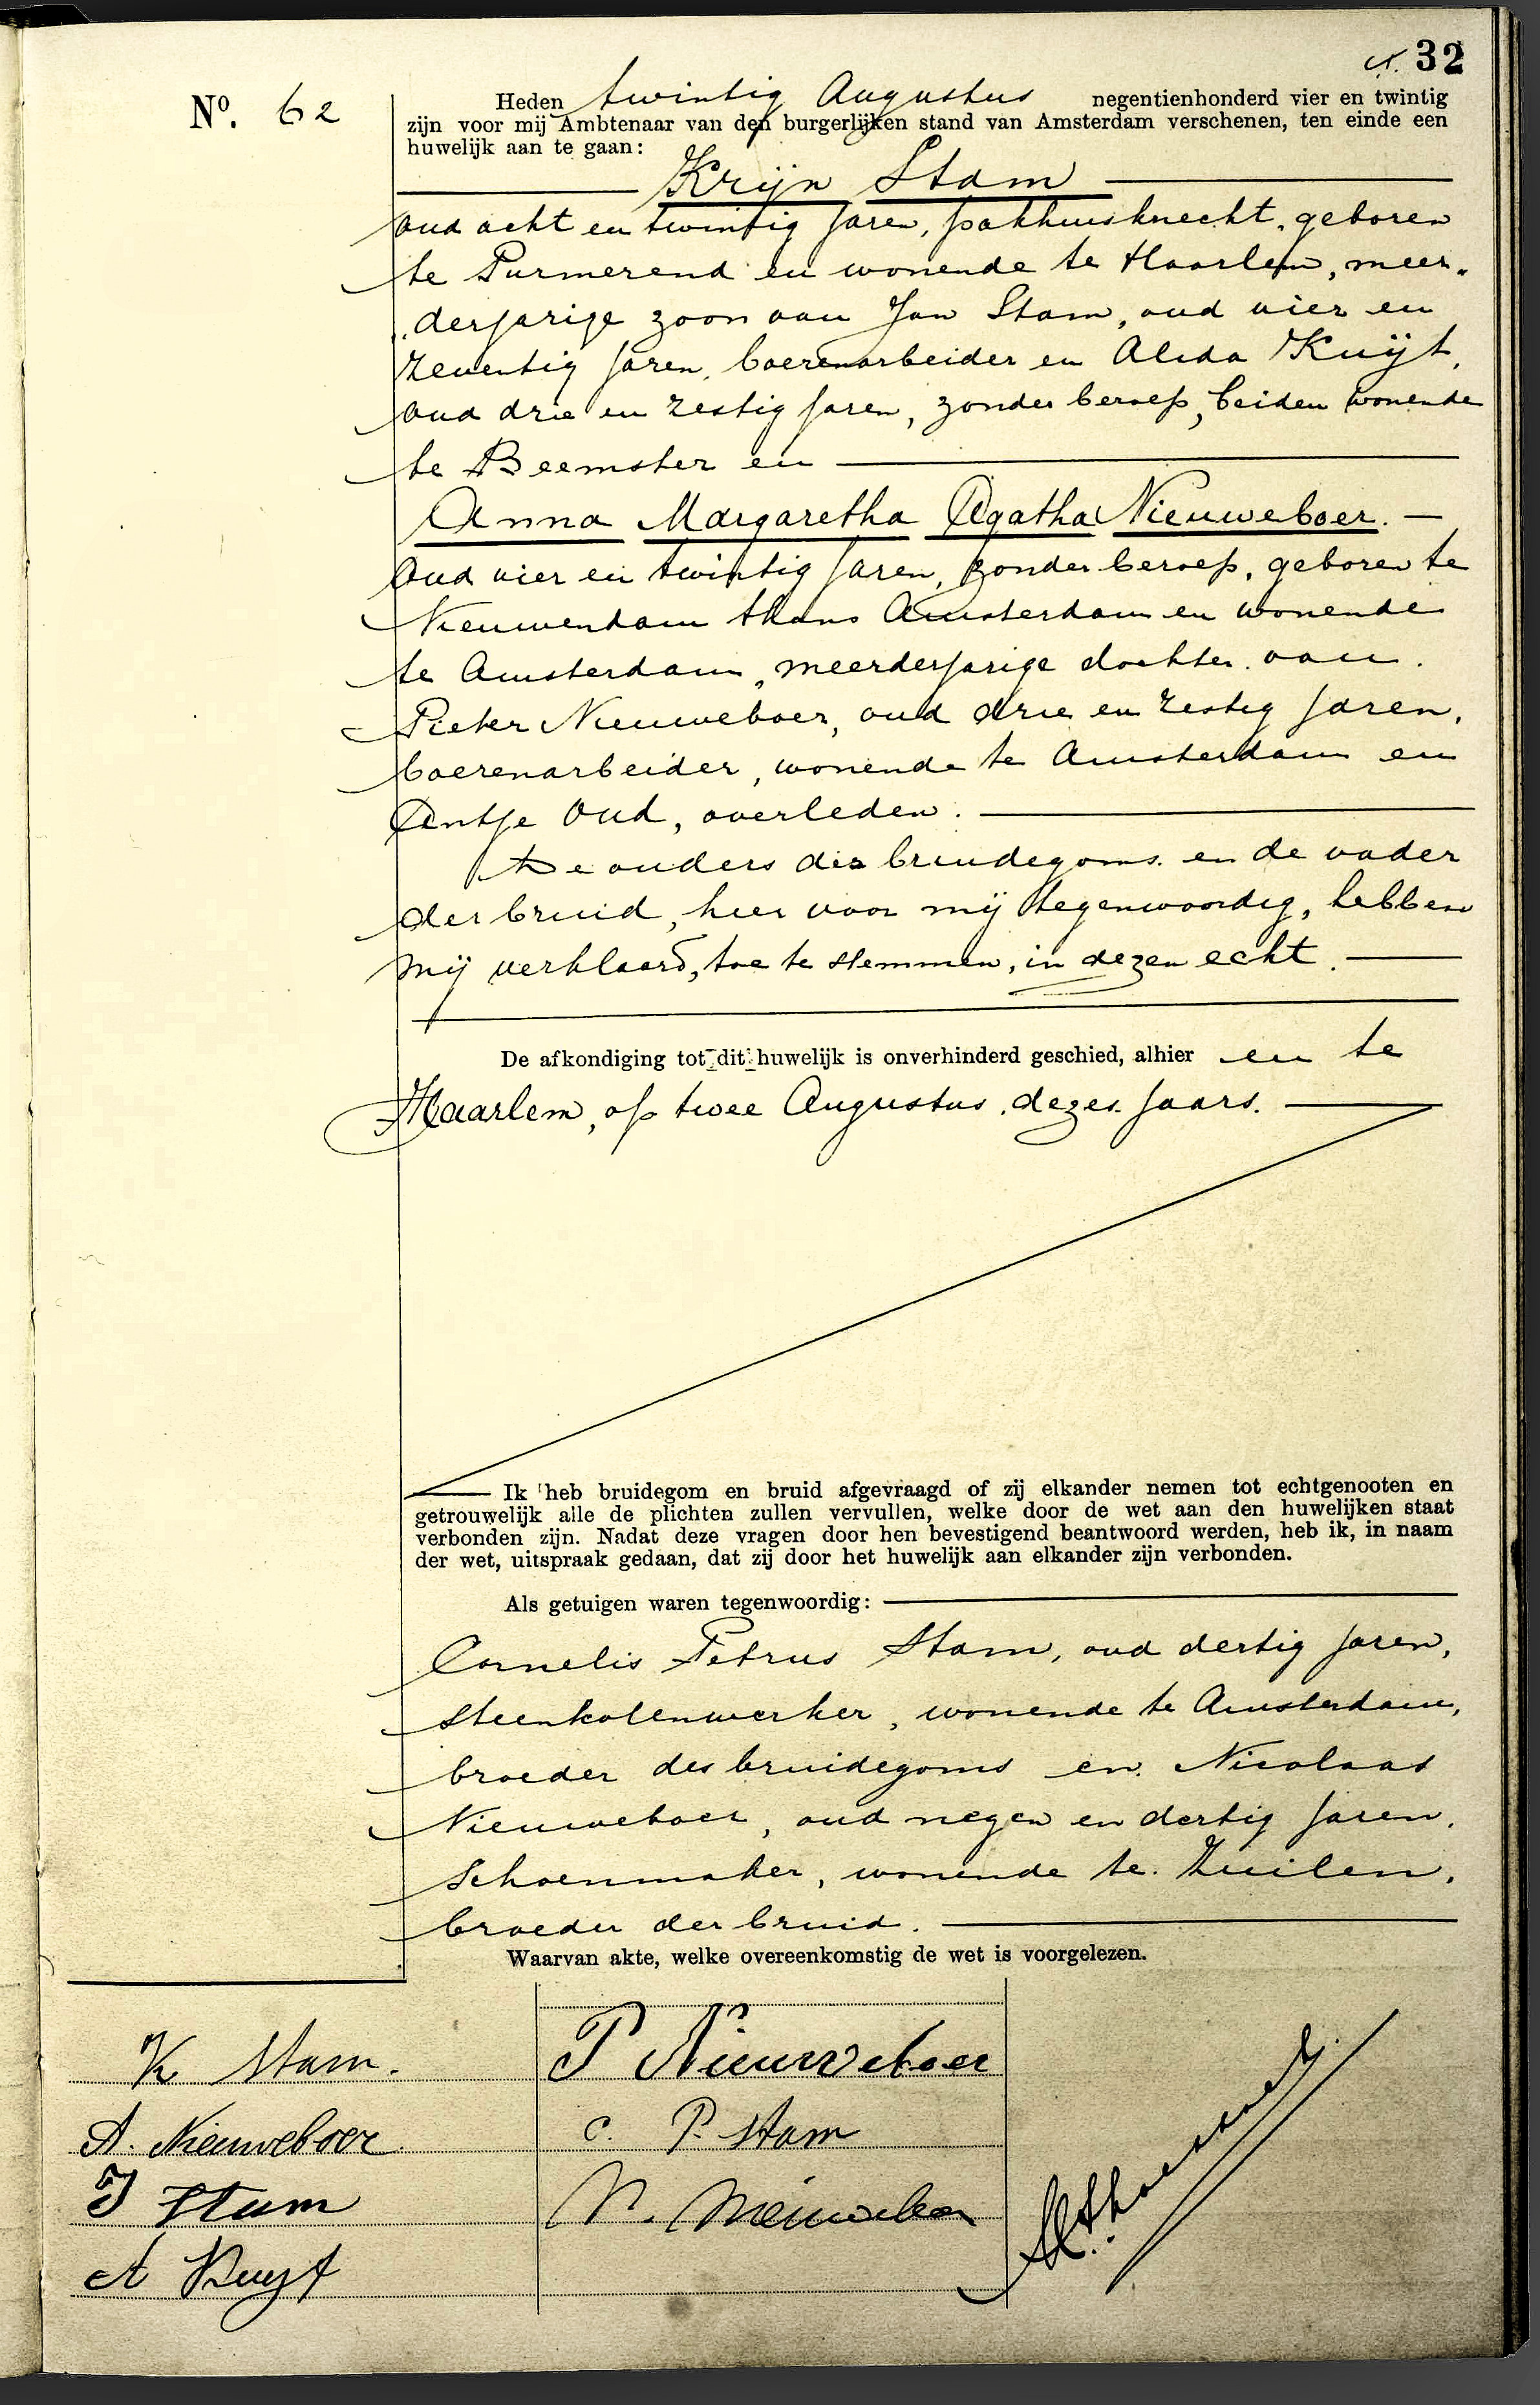 N. 32
Nº. 62
Heden twintig Augustus negentienhonderd vier en twintig
zijn voor mij Ambtenaar van den burgerlijken stand van Amsterdam verschenen, ten einde een
huwelijk aan te gaan:
Krijn Stam
oud acht en twintig jaren, pakhuisknecht, geboren
te Purmerend en wonende te Haarlem, meer-
derjarige zoon van Jan Stam, oud vier en
zeventig jaren, boerenarbeider en Alida Kuijt,
oud drie en zestig jaren, zonder beroep, beiden wonende
te Beemster en
Anna Margaretha Agatha Nieuweboer.
oud vier en twintig jaren, zonder beroep, geboren te
Nieuwendam thans Amsterdam en wonende
te Amsterdam, meerderjarige dochter van
Pieter Nieuweboer, oud drie en zestig jaren,
boerenarbeider, wonende te Amsterdam en
Antje Oud, overleden.
De ouders des bruidegoms en de vader
der bruid, hier voor mij tegenwoordig, hebben
mij verklaard, toe te stemmen, in dezen echt.
De afkondiging tot dit huwelijk is onverhinderd geschied, alhier en te
Haarlem, op twee Augustus dezes jaars.
Ik heb bruidegom en bruid afgevraagd of zij elkander nemen tot echtgenooten en
getrouwelijk alle de plichten zullen vervullen, welke door de wet aan den huwelijken staat
verbonden zijn. Nadat deze vragen door hen bevestigend beantwoord werden, heb ik, in naam
der wet, uitspraak gedaan, dat zij door het huwelijk aan elkander zijn verbonden.
Als getuigen waren tegenwoordig:
Cornelis Petrus Stam, oud dertig jaren,
steenkolenwerker, wonende te Amsterdam,
broeder des bruidegoms en Nicolaas
Nieuweboer, oud negen en dertig jaren,
schoenmaker, wonende te Zuilen,
broeder der bruid.
Waarvan akte, welke overeenkomstig de wet is voorgelezen.
K Stam.
A. Nieuweboer
J Stam
A Kuyt
P Nieuweboer
C. P. Stam
N. Nieuweboer